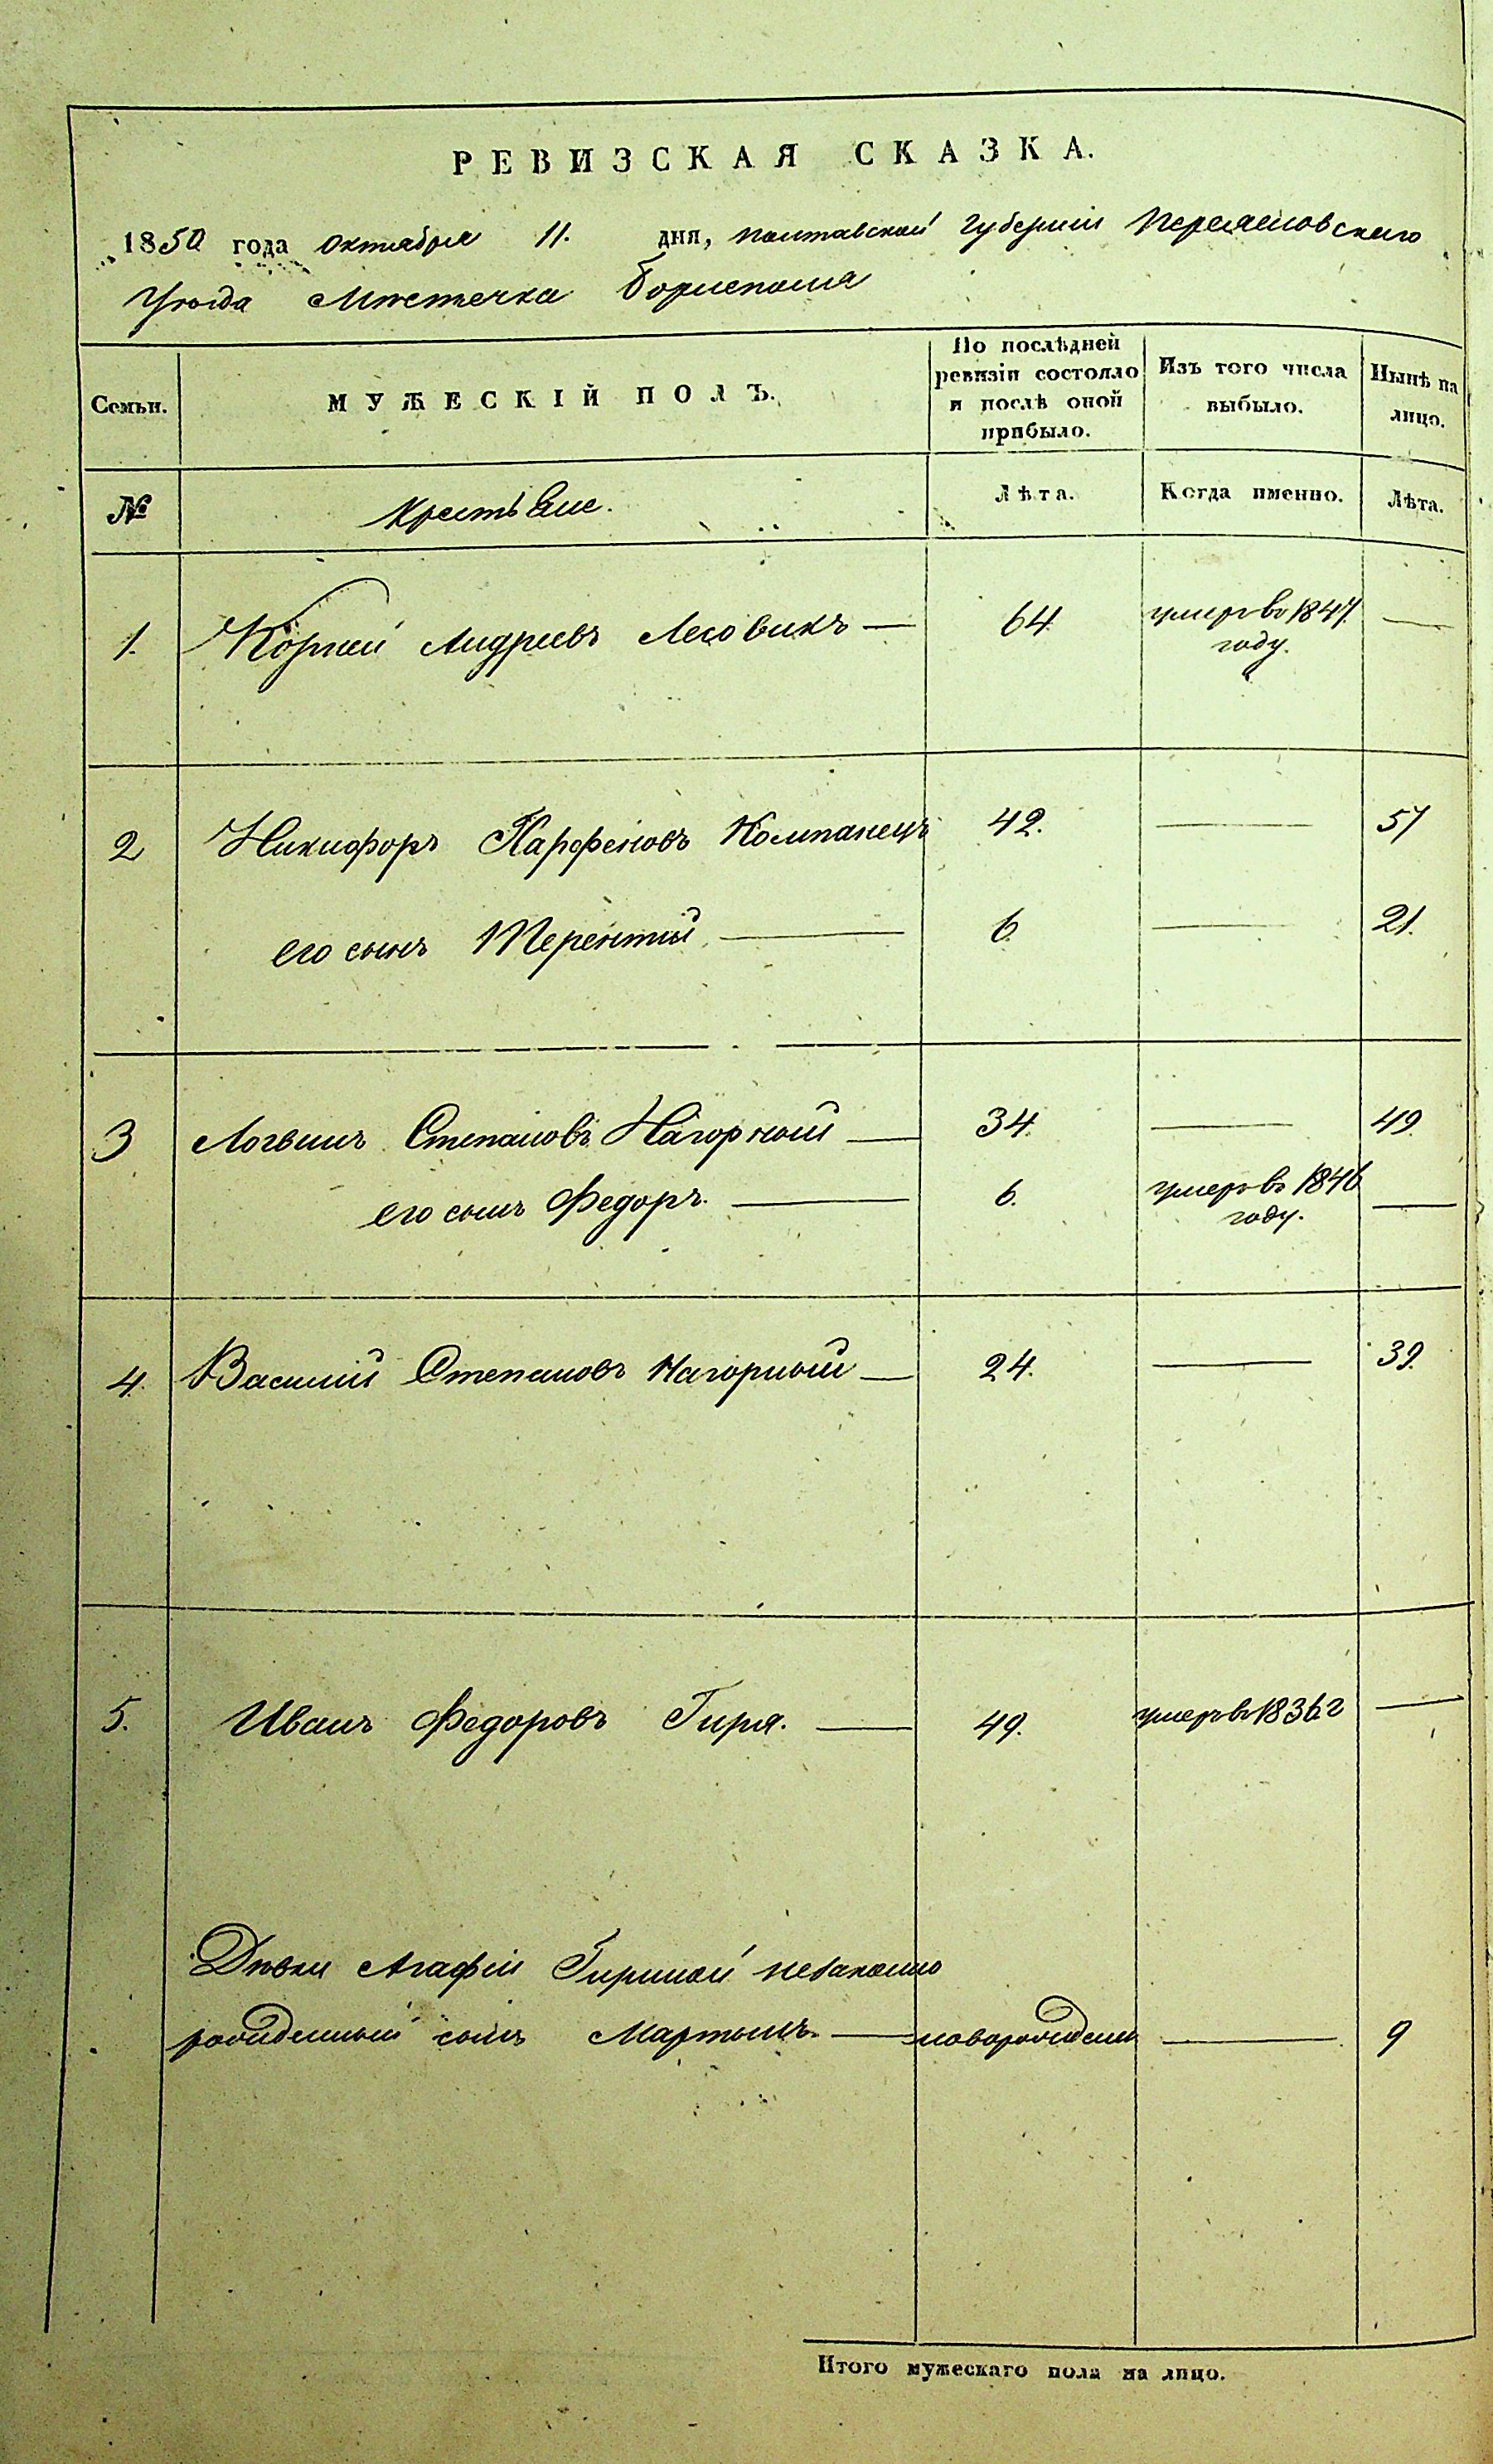 РЕВИЗСКАЯ СКАЗКА.
1850 года октября 11. дня, полтавской губернии Переяславского
Уезда Местечка Борисполя
Семьи. МУЖЕСКІЙ ПОЛЪ. По послѣдней ревизіи состояло и послѣ оной прибыло. Изъ того числа выбыло. Нынѣ на лицо.
№ Крестьяне. Лѣта. Когда именно. Лѣта.
1. Корней Андреевъ Лесовикъ — 64. умеръ въ 1847. году. —
2 Никифоръ Парфеновъ Компанецъ 42. — 57
его сынъ Терентій — 6. — 21.
3 Логвинъ Степановъ Нагорный — 34. — 49.
его сынъ Федоръ. — 6. умеръ въ 1846 году. —
4. Василий Степановъ Нагорный — 24. — 39.
5. Иванъ Федоровъ Гиря. — 49. умеръ въ 1836 г —
Дѣвки Агафіи Гириной незаконно
рожденный сынъ Мартынъ. — новорожденъ — 9
Итого мужескаго пола на лицо.